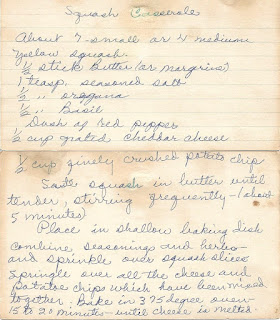 Squash Casserole
About 7 small or 4 medium
yellow squash
1/2 stick Butter (or margrine)
1 teasp. seasoned salt
1/2 " oreggina
1/2 " Basil
Dash of Red pepper
1/2 cup grated cheddar cheese
1/2 cup finely crushed potato chip
Saute squash in butter until
tender, stirring frequently - (about
5 minutes)
Place in shallow baking dish
combine seasoning and herbs
and sprinkle over squash slices
Sprinkle over all the cheese and
potatoe chips which have been mixed
together. Bake in 375 degree oven
15 to 20 minutes - until cheese is melted.